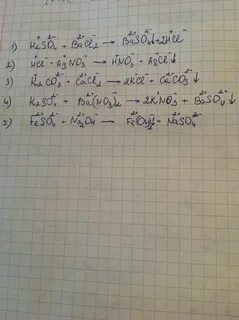 1) H₂⁺SO₄²⁻ + Ba²⁺Cl₂⁻ → Ba²⁺SO₄²⁻↓ + 2H⁺Cl⁻
2) H⁺Cl⁻ + Ag⁺NO₃⁻ → H⁺NO₃⁻ + Ag⁺Cl⁻↓
3) K₂⁺CO₃²⁻ + Ca²⁺Cl₂⁻ → 2K⁺Cl⁻ + Ca²⁺CO₃²⁻↓
4) K₂⁺SO₄²⁻ + Ba²⁺(NO₃)₂⁻ → 2K⁺NO₃⁻ + Ba²⁺SO₄²⁻↓
5) Fe²⁺SO₄²⁻ + Na₂O4 → + NaSO₄